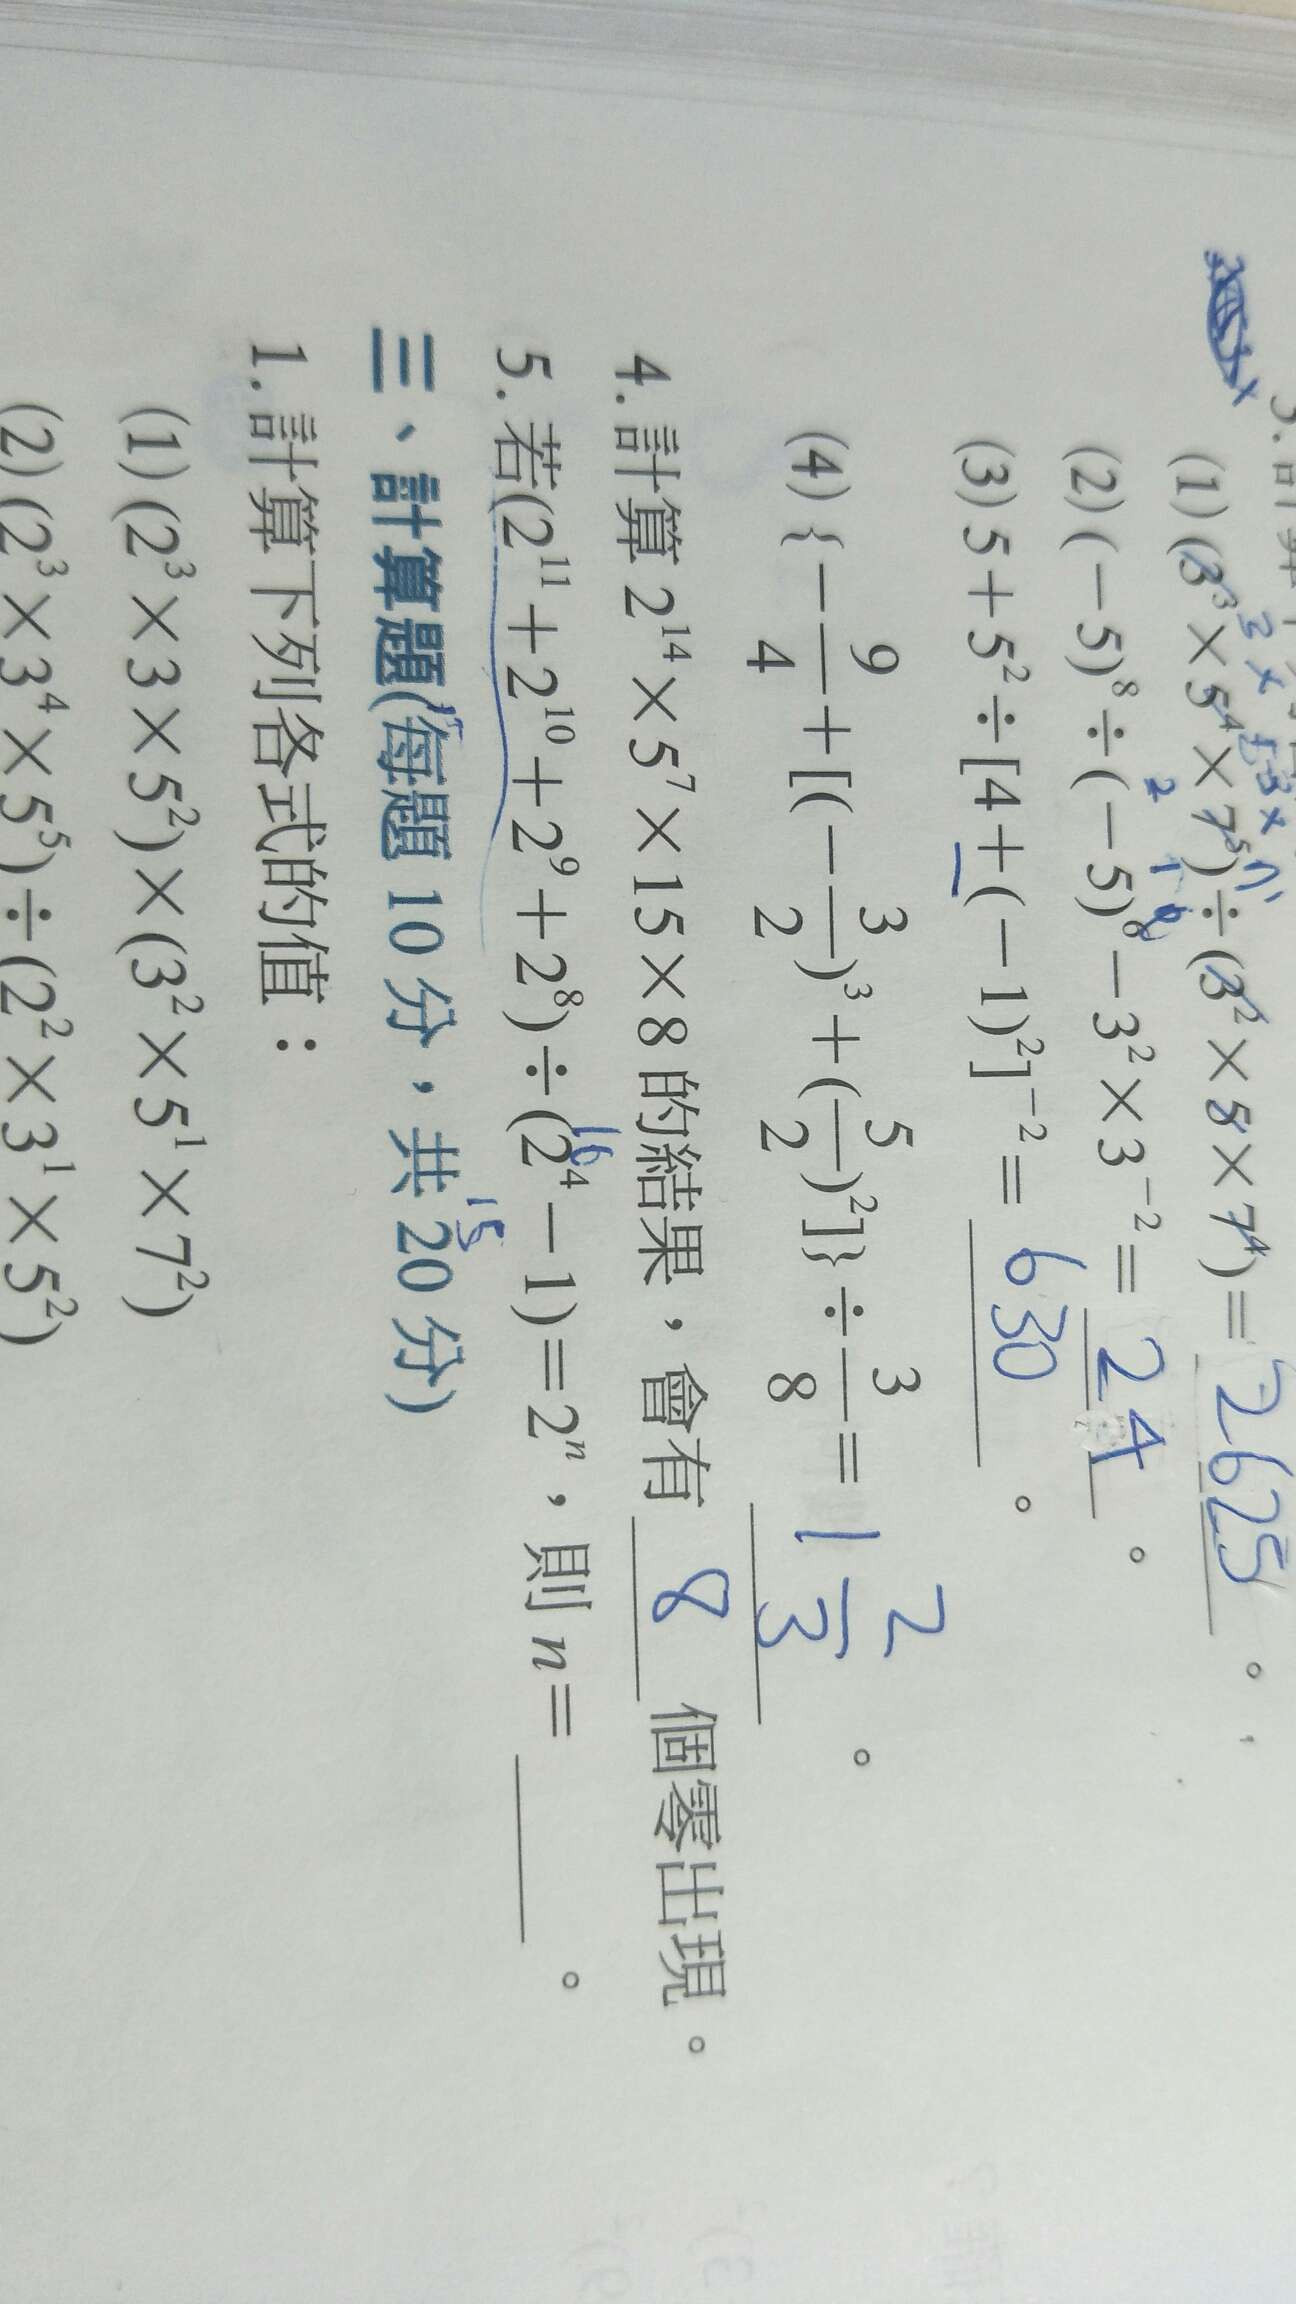 (1) (3³×5⁴×7⁵)÷(3²×5×7⁴)= 2625 。
(2) (－5)⁸÷(－5)⁶－3²×3⁻²= 24 。
(3) 5＋5²÷[4＋(－1)²]⁻²= 630 。
(4) {－9/4＋[(－3/2)³＋(5/2)²]}÷3/8= 1 2/3 。
4. 計算 2¹⁴×5⁷×15×8 的結果，會有 8 個零出現。
5. 若(2¹¹＋2¹⁰＋2⁹＋2⁸)÷(2⁴－1)=2ⁿ，則 n=＿＿。
16
15
三、計算題(每題 10 分，共 20 分)
1. 計算下列各式的值：
(1) (2³×3×5²)×(3²×5¹×7²)
(2) (2³×3⁴×5⁵)÷(2²×3¹×5²)